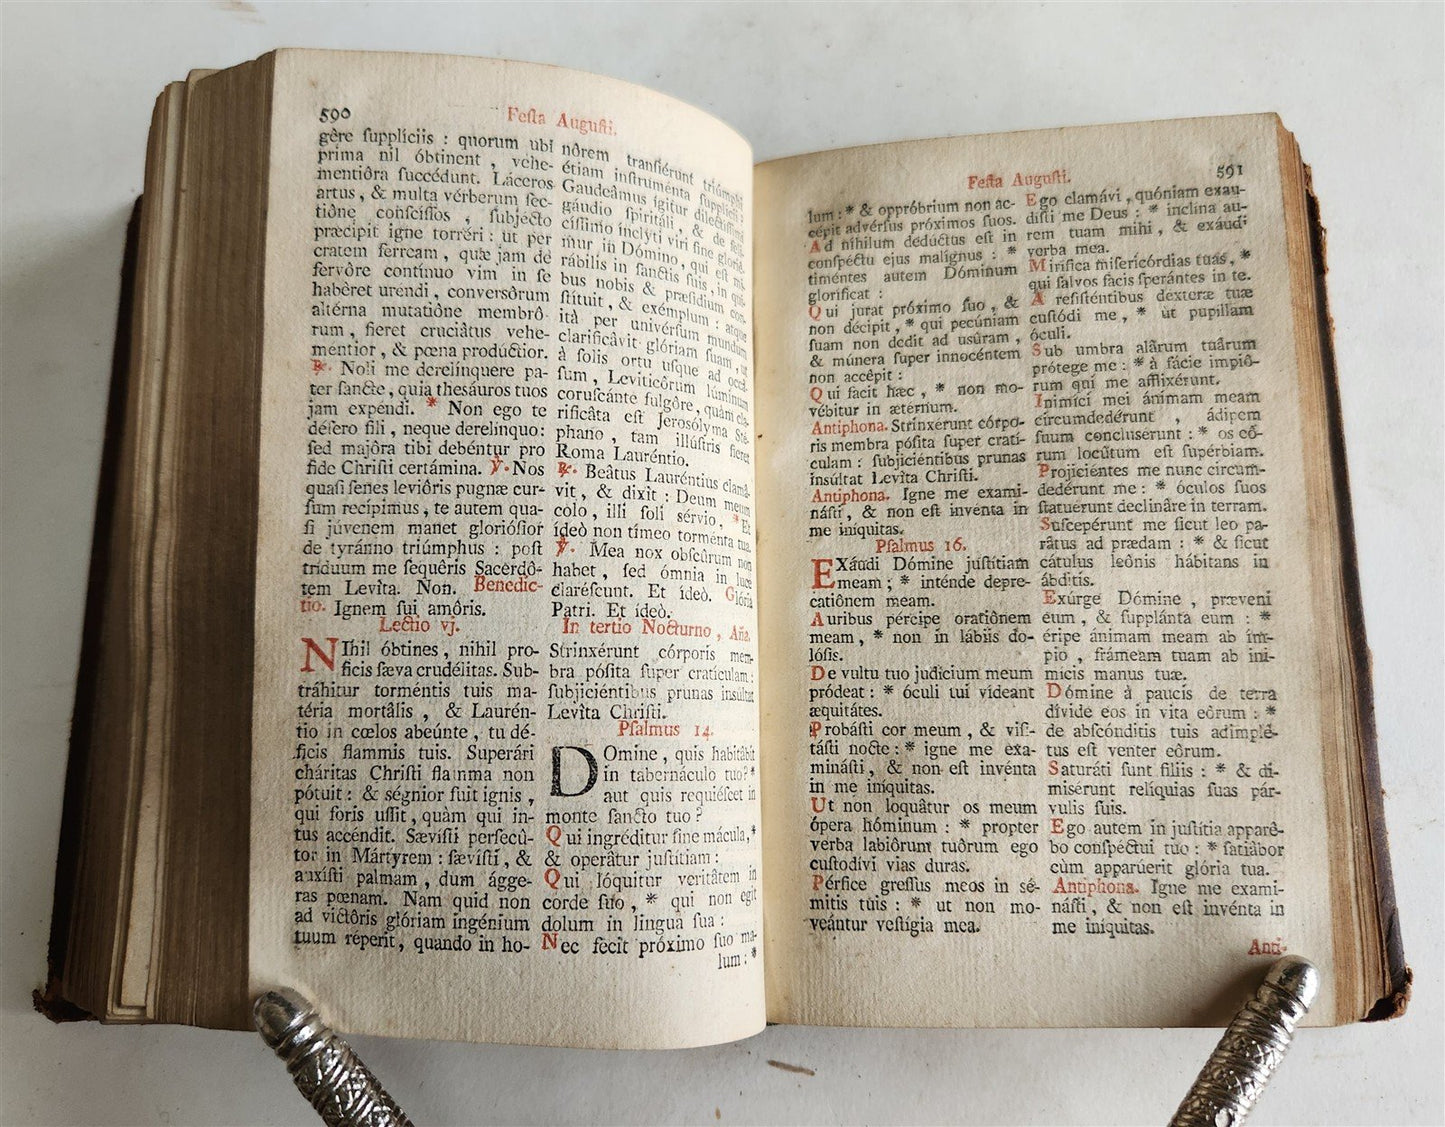 590
Feſta Auguſti.
gêre ſupplíciis : quorum ubi
prima nil óbtinent , vehe-
mentiôra ſuccédunt. Láceros
artus , & multa vérberum ſec-
tiône conſciſſos , ſubjécto
præcipit igne torréri : ut per
cratem ferream , quæ jam de
fervôre contínuo vim in ſe
habêret urendi , conversôrum
altérna mutatiône membrô-
rum , fieret cruciâtus vehe-
mentior , & pœna prodúctior.
℟. Noli me derelínquere pa-
ter ſancte , quia theſáuros tuos
jam expendi. * Non ego te
déſero fili , neque derelinquo:
ſed majôra tibi debéntur pro
fide Chriſti certámina. ℣. Nos
quaſi ſenes leviôris pugnæ cur-
ſum recipimus , te autem qua-
ſi júvenem manet glorióſior
de tyránno triúmphus : poſt
triduum me ſequêris Sacerdô-
tem Levîta. Non. Benedic-
tio. Ignem ſui amôris.
Lectio vj.
NIhil óbtines , nihil pro-
ficis ſæva crudélitas. Sub-
tráhitur torméntis tuis ma-
téria mortâlis , & Laurén-
tio in cœlos abeúnte , tu dé-
ficis flammis tuis. Superári
cháritas Chriſti flamma non
pótuit : & ségnior fuit ignis ,
qui foris uſſit , quàm qui in-
tus accéndit. Sæviſti perſecû-
tor in Mártyrem : ſæviſti , &
auxiſti palmam , dum ágge-
ras pœnam. Nam quid non
ad victôris glóriam ingénium
tuum réperit , quando in ho-
nôrem tranſiérunt triúmphi
étiam inſtruménta ſupplicii :
Gaudeâmus ígitur dilectíſſimi
gáudio ſpiritáli , & de felí-
ciſſimo ínclyti viri fine gloriê-
mur in Dómino , qui eſt mi-
rábilis in ſanctis ſuis , in qui-
bus nobis & præſídium con-
ſtítuit , & exémplum : atque
ità per univérſum mundum
clarificâvit glóriam ſuam , ut
à ſolis ortu uſque ad occá-
ſum , Leviticôrum lúminum
coruſcánte fulgôre , quàm cla-
rificâta eſt Jeroſólyma Sté-
phano , tam illúſtris fieret
Roma Lauréntio.
℟. Beâtus Lauréntius clamâ-
vit , & dixit : Deum meum
colo , illi ſoli sérvio , * Et
ídeò non tímeo torménta tua.
℣. Mea nox obſcûrum non
habet , ſed ómnia in luce
claréſcunt. Et ídeò. Glória
Patri. Et ídeò.
In tertio Nocturno , Aña.
Strinxérunt córporis mem-
bra póſita ſuper cratículam :
ſubjiciéntibus prunas inſultat
Levîta Chriſti.
Pſalmus 14.
DOmine , quis habitâbit
in tabernáculo tuo ? *
aut quis requiéſcet in
monte ſancto tuo ?
Qui ingréditur ſine mácula, *
& operâtur juſtítiam :
Qui lóquitur veritâtem in
corde ſuo , * qui non egit
dolum in lingua ſua :
Nec fecit próximo ſuo ma-
lum : *
591
Feſta Auguſti.
lum : * & oppróbrium non ac-
cépit advérſus próximos ſuos.
Ad níhilum dedúctus eſt in
conſpéctu ejus malígnus : *
timéntes autem Dóminum
glorificat :
Qui jurat próximo ſuo , &
non décipit , * qui pecúniam
ſuam non dedit ad usûram ,
& múnera ſuper innocéntem
non accêpit :
Qui facit hæc , * non mo-
vébitur in æternum.
Antiphona. Strinxérunt córpo-
ris membra póſita ſuper cratí-
culam : ſubjiciéntibus prunas
inſúltat Levîta Chriſti.
Antiphona. Igne me exami-
náſti , & non eſt invénta in
me iníquitas.
Pſalmus 16.
EXáudi Dómine juſtítiam
meam ; * inténde depre-
catiônem meam.
Auribus pércipe oratiônem
meam , * non in lábiis do-
lóſis.
De vultu tuo judícium meum
pródeat : * óculi tui vídeant
æquitátes.
Probáſti cor meum , & viſi-
táſti nocte : * igne me exa-
mináſti , & non eſt invénta
in me iníquitas.
Ut non loquâtur os meum
ópera hóminum : * propter
verba labiôrum tuôrum ego
cuſtodívi vias duras.
Pérfice greſſus meos in sé-
mitis tuis : * ut non mo-
veántur veſtígia mea.
Ego clamávi , quóniam exau-
díſti me Deus : * inclina au-
rem tuam mihi , & exáudi
verba mea.
Mirífica miſericórdias tuas , *
qui ſalvos facis ſperántes in te.
A reſiſténtibus dexteræ tuæ
cuſtódi me , * ut pupíllam
óculi.
Sub umbra alârum tuârum
prótege me : * à fácie impiô-
rum qui me afflixérunt.
Inimíci mei ánimam meam
circumdedérunt , ádipem
ſuum concluſérunt : * os eô-
rum locútum eſt ſupérbiam.
Projiciéntes me nunc circum-
dedérunt me : * óculos ſuos
ſtatuérunt declinâre in terram.
Suſcepérunt me ſicut leo pa-
râtus ad prædam : * & ſicut
cátulus leônis hábitans in
ábditis.
Exúrge Dómine , præveni
eum , & ſupplánta eum : *
éripe ánimam meam ab ím-
pio , frámeam tuam ab ini-
micis manus tuæ.
Dómine à paucis de terra
dívide eos in vita eôrum : *
de abſcónditis tuis adimplê-
tus eſt venter eôrum.
Saturáti ſunt fíliis : * & di-
miſérunt relíquias ſuas pár-
vulis ſuis.
Ego autem in juſtítia apparê-
bo conſpéctui tuo : * ſatiâbor
cùm apparúerit glória tua.
Antiphona. Igne me exami-
náſti , & non eſt invénta in
me iníquitas.
Anti-